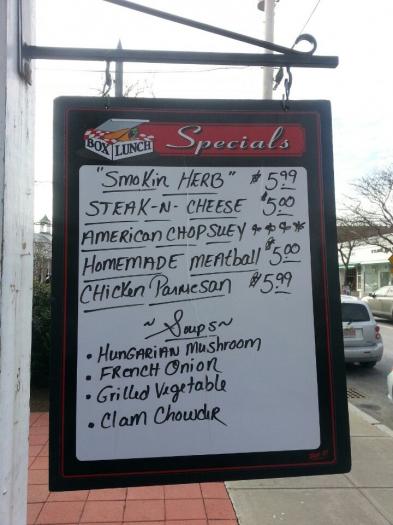 BOX LUNCH Specials
"Smokin HERB" $5.99
STEAK-N-CHEESE $5.00
AMERICAN CHOPSUEY * * * *
HOMEMADE meatball $5.00
Chicken Parmesan $5.99
~ Soups ~
• Hungarian Mushroom
• French Onion
• Grilled Vegetable
• Clam Chowder